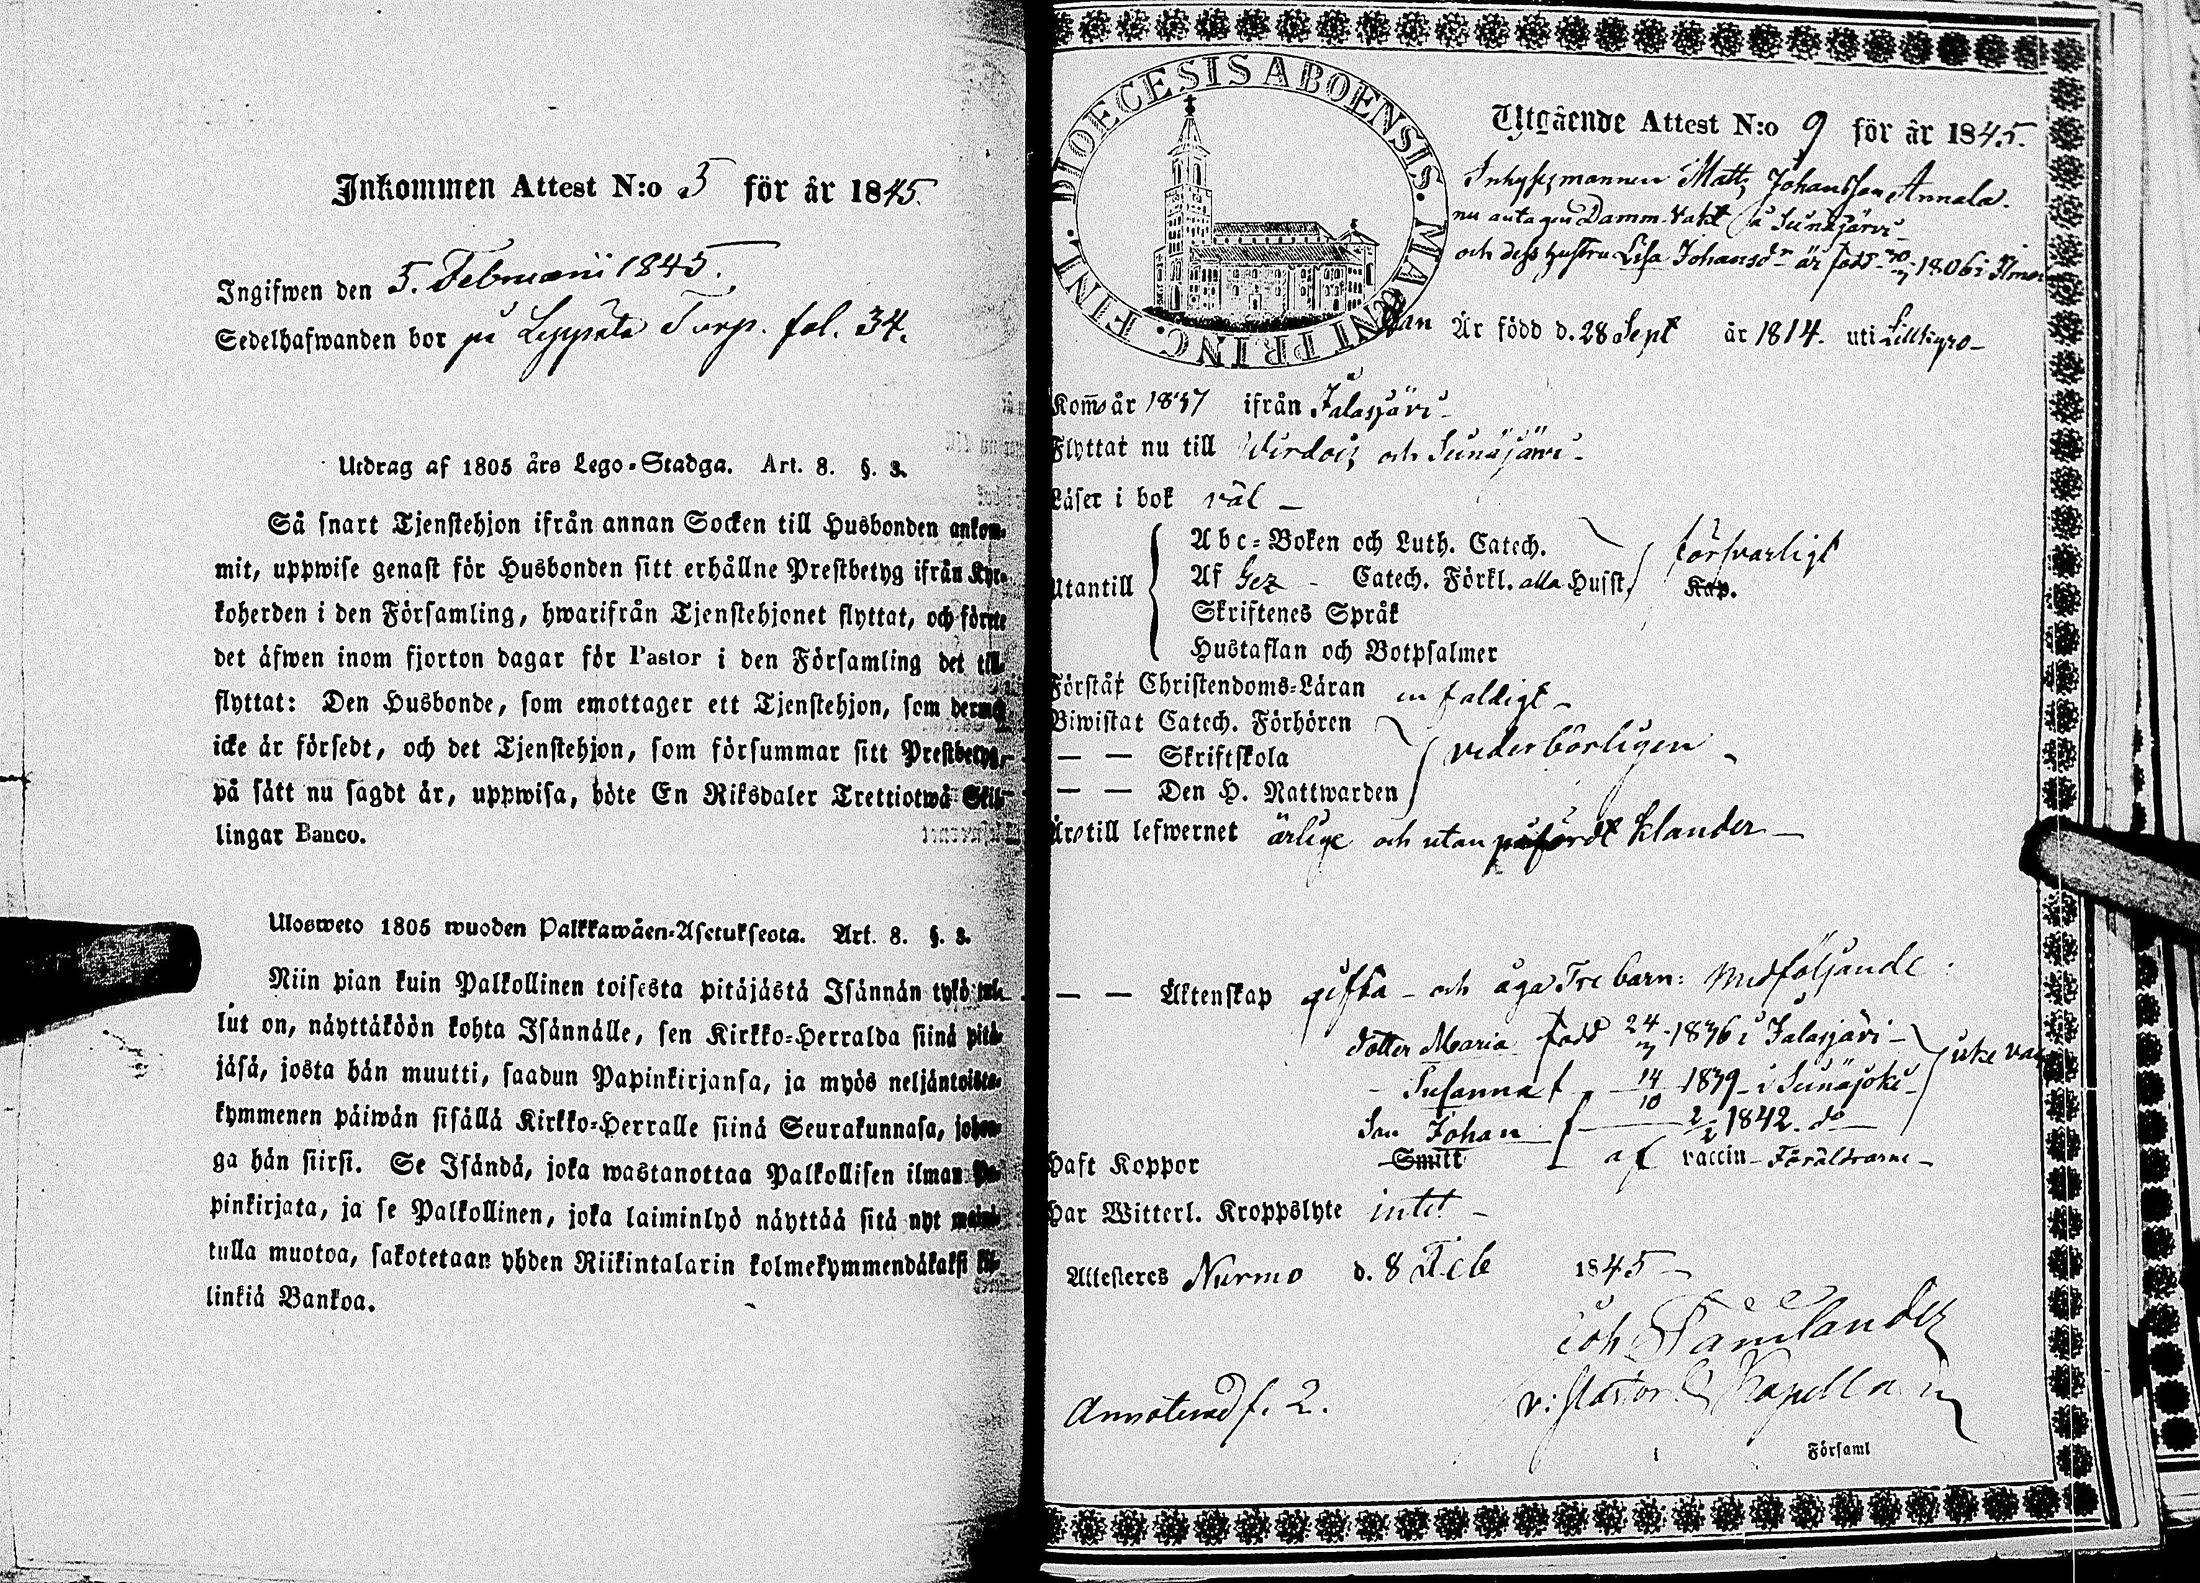 Inkommen Attest N:o 5 för år 1845.
Ingifwen den 5. Februarii 1845.
Sedelhafwanden bor på Leppälä Torp. fol. 34.
Utdrag af 1805 års Lego-Stadga. Art. 8. §. 3.
Så snart Tjenstehjon ifrån annan Socken till Husbonden ankom-
mit, uppwise genast för Husbonden sitt erhållne Prestbetyg ifrån Kyr-
koherden i den Församling, hwarifrån Tjenstehjonet flyttat, och förete
det äfwen inom fjorton dagar för Pastor i den Församling det till-
flyttat: Den Husbonde, som emottager ett Tjenstehjon, som dermed
icke är försedt, och det Tjenstehjon, som försummar sitt Prestbetyg,
på sätt nu sagdt är, uppwisa, böte En Riksdaler Trettiotwå Skil-
lingar Banco.
Ulosweto 1805 wuoden Palkkawäen-Asetuksesta. Art. 8. §. 3.
Niin pian kuin Palkollinen toisesta pitäjästä Isännän tykö tul-
lut on, näyttäköön kohta Isännälle, sen Kirkko-Herralda siinä pitä-
jäsä, josta hän muutti, saadun Papinkirjansa, ja myös neljäntoista-
kymmenen päiwän sisällä Kirkko-Herralle siinä Seurakunnasa, johon-
ga hän siirsi. Se Isändä, joka wastanottaa Palkollisen ilman Pa-
pinkirjata, ja se Palkollinen, joka laiminlyö näyttää sitä nyt maini-
tulla muotoa, sakotetaan yhden Riikintalarin kolmekymmendäkaksi kil-
linkiä Bankoa.
DIOECESIS ABOENSIS. MAGNI PRINC. FINL.
Utgående Attest N:o 9 för år 1845.
Inhysesmannen Matts Johansson Annala.
nu antagen Damm-Vakt på Seinäjärvi
och dess hustru Lisa Johansdr är född 1806 i
Han Är född d. 28 Sept år 1814. uti Lillkyro
Komo år 1837 ifrån Jalasjärvi
Flyttat nu till Virdois och Seinäjärvi
Läser i bok väl
Utantill
Abc-Boken och Luth. Catech.
Af Gez Catech. Förkl. alla Husst. försvarligt Kap.
Skriftenes Språk
Hustaflan och Botpsalmer
Förstår Christendoms-Läran enfaldigt
Biwistat Catech. Förhören
— — Skriftskola vederbörligen
— — Den H. Nattwarden
Äro till lefwernet ärlige och utan påfördt klander
— — Äktenskap gifta och äga Tre barn: Medföljande
dotter Maria född 24/7 1836 i Jalasjärvi
Susanna f 14/10 1839 i Seinäjoki
Son Johan f 2/2 1842. do
Haft Koppor Smitt af vaccin Föräldrarne
Har Witterl. Kroppslyte intet
Attesteres Nurmo d. 8 Feb 1845
Joh
v: Pastor & Kapellan
Annoterad f. 2.
Församl